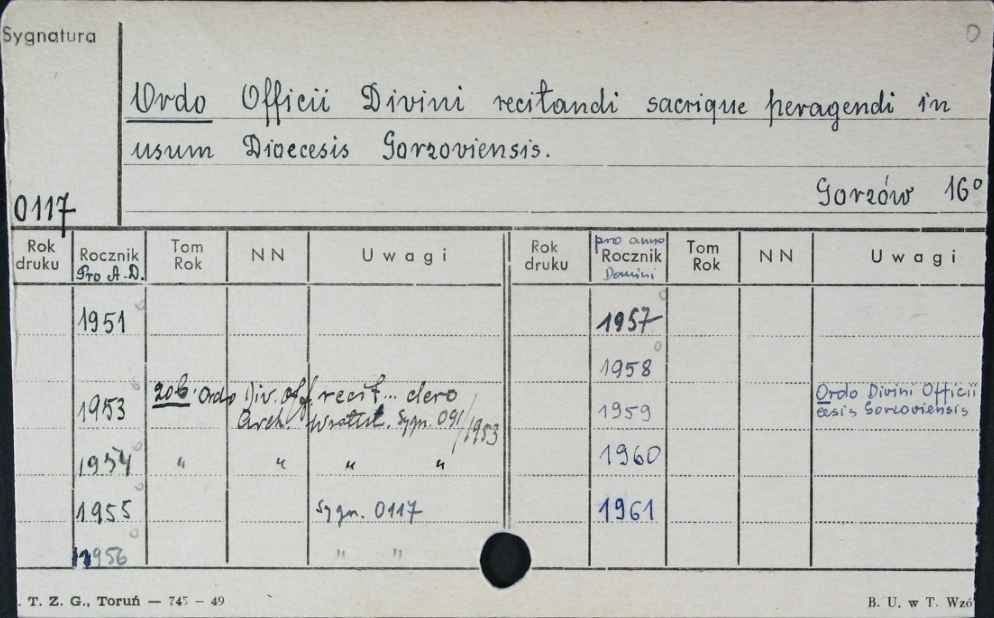 Sygnatura
Ordo Officii Divini recitandi sacrique peragendi in
usum Dioecesis Gorzoviensis.
Gorzów 16°
0117
Rok druku Rocznik Pro A.D. Tom Rok NN Uwagi Rok druku pro anno Rocznik Domini Tom Rok NN Uwagi
1951 1957
1958
1953 zob. Ordo Div. Off. recit... clero 1959 Ordo Divini Officii
Arch. Wratisl. Sygn. 091/1953 cesis Gorzoviensis
1954 " " " " 1960
1955 Sygn. 0117 1961
1956 " "
. T. Z. G., Toruń — 745 — 49 B. U. w T. Wzó